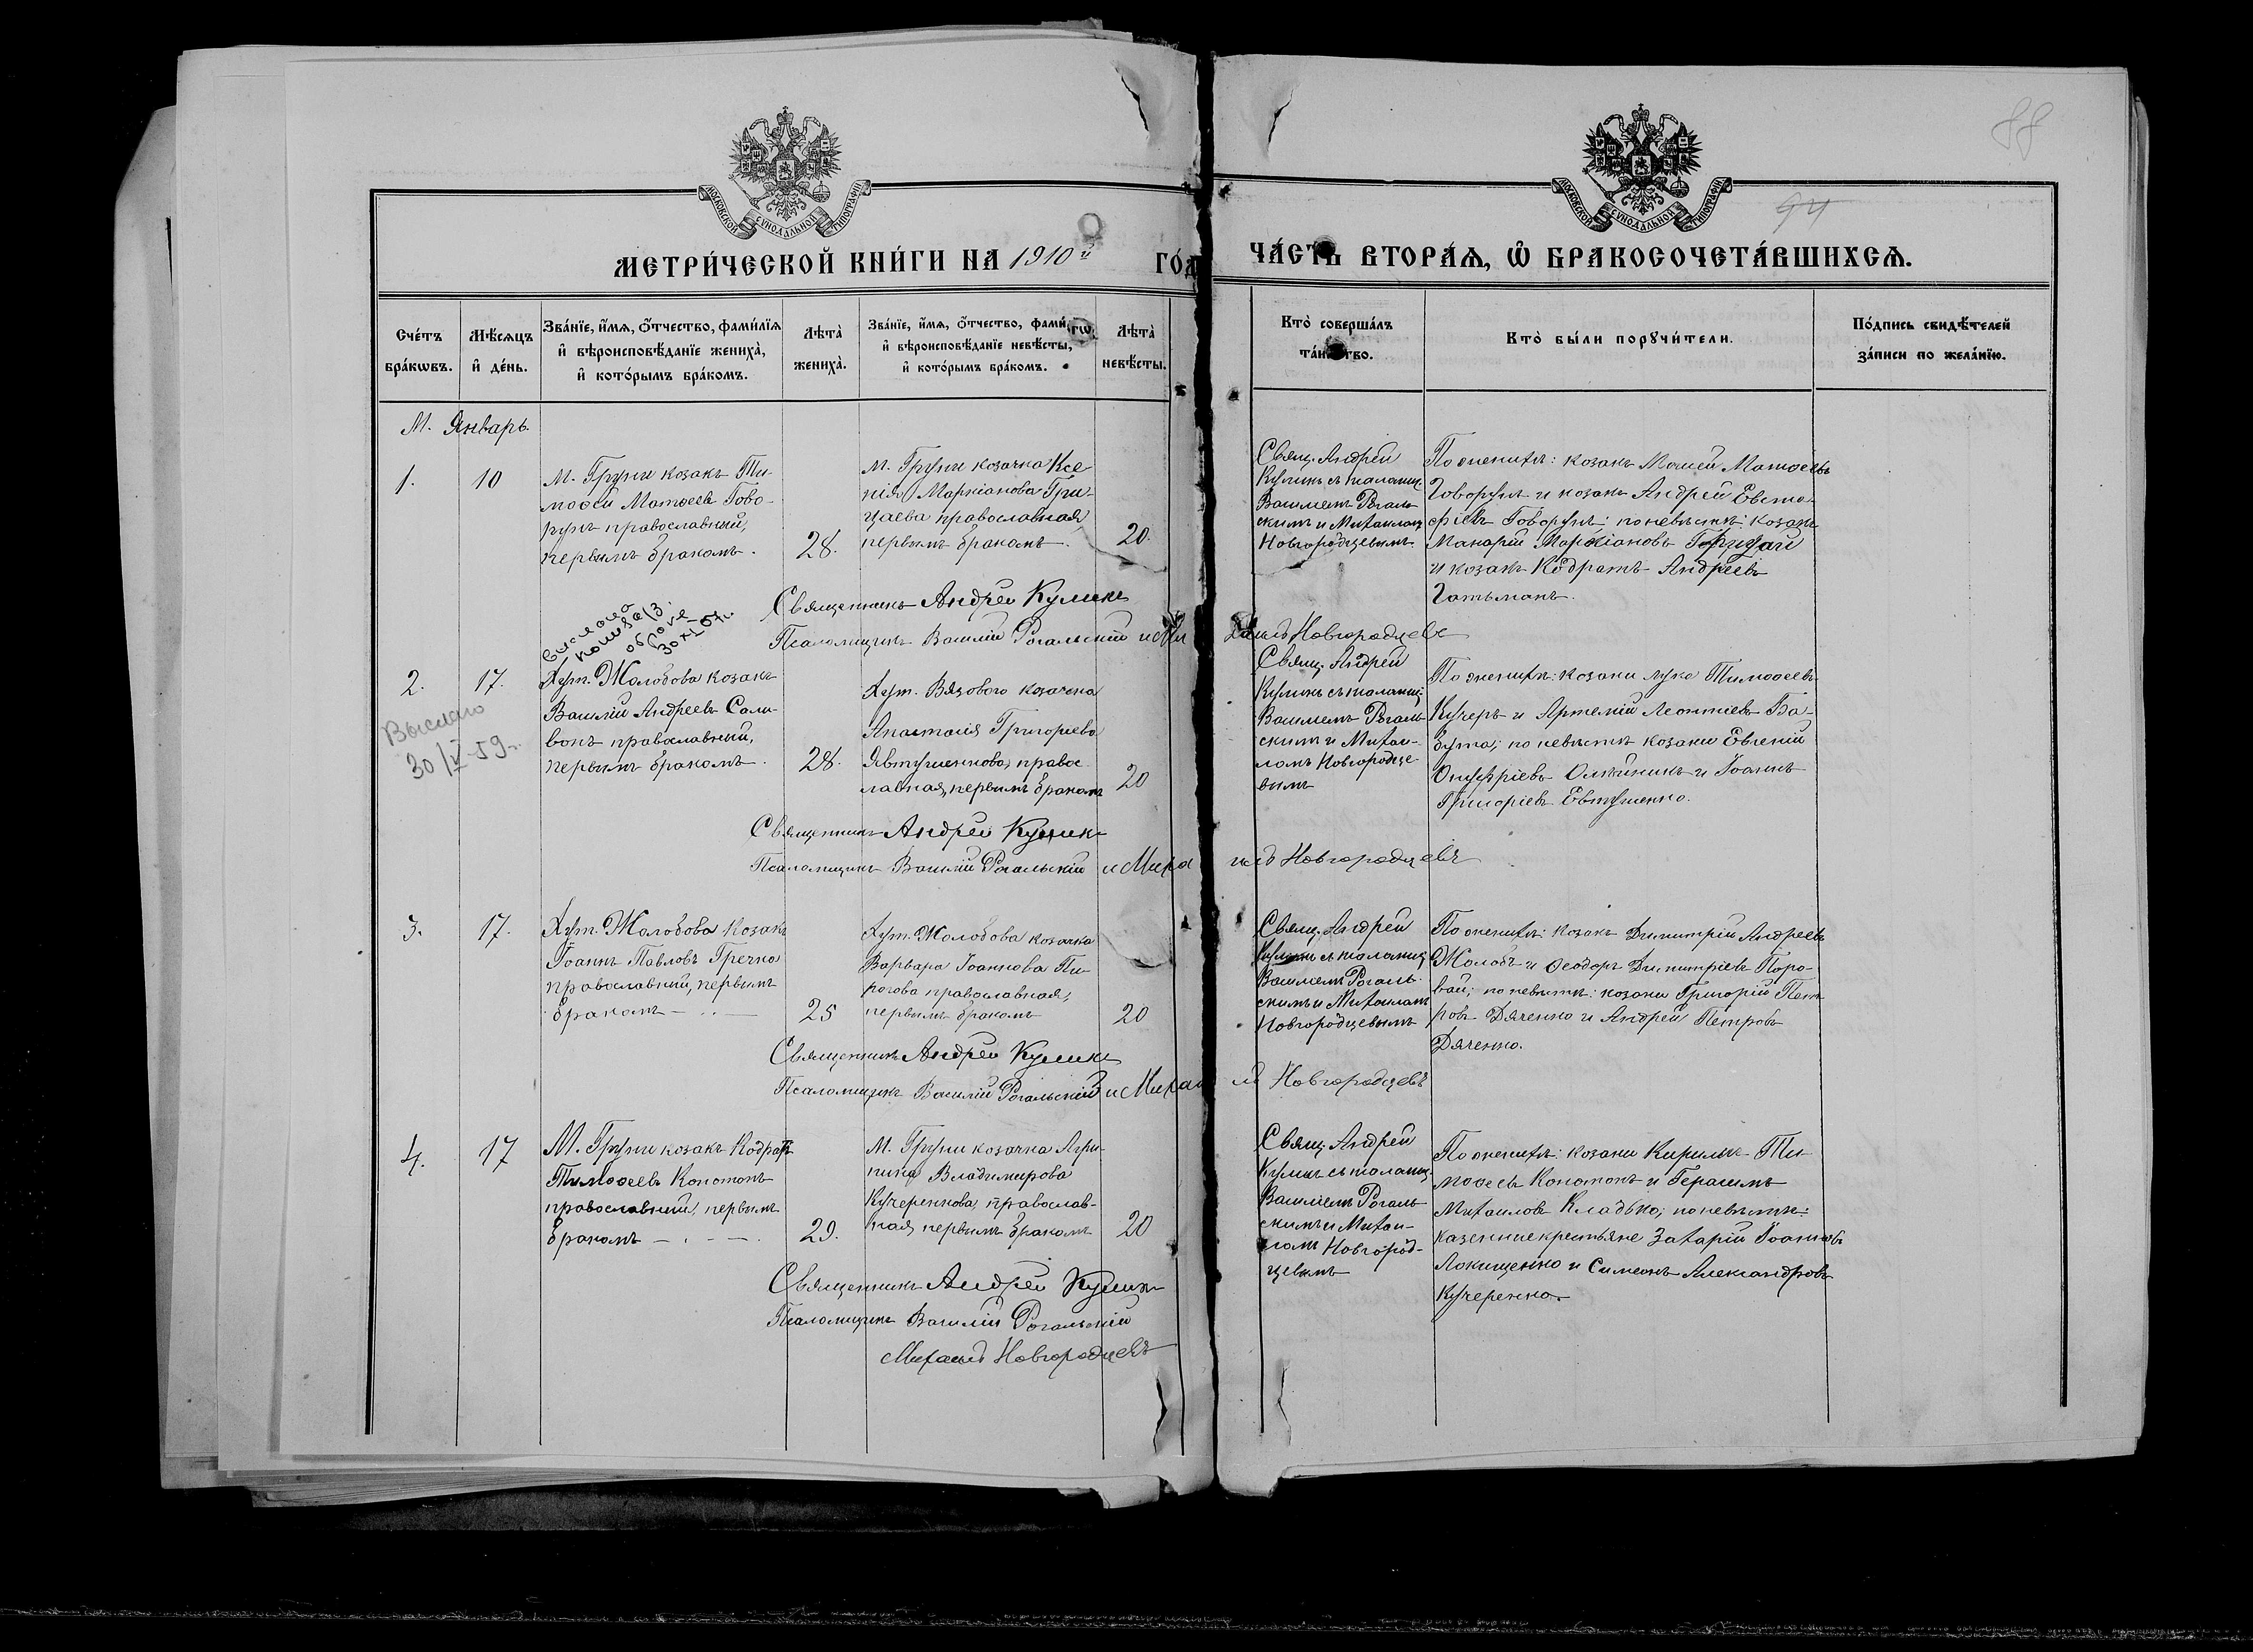 88
94
МОСКОВСКОЙ СѴНОДАЛЬНОЙ ТИПОГРАФІИ
МОСКОВСКОЙ СѴНОДАЛЬНОЙ ТИПОГРАФІИ
МЕТРИ́ЧЕСКОЙ КНИ́ГИ НА 1910й ГО́Д
ЧА́СТЬ ВТОРА́Ѧ, Ѽ БРАКОСОЧЕТА́ВШИХСѦ.
Сче́тъ бра́кѡвъ.
Мѣ́сѧцъ и҆ де́нь.
Зва́нїе, и҆́мѧ, ѻ҆́тчество, фами́лїѧ и҆ вѣроисповѣ́данїе жениха̀, и҆ кото́рымъ бра́комъ.
Лѣта̀ жениха̀.
Зва́нїе, и҆́мѧ, ѻ҆́тчество, фами́ и҆ вѣроисповѣ́данїе невѣ́сты, и҆ кото́рымъ бра́комъ.
Лѣта̀ невѣ́сты.
Кто̀ соверша́лъ та́инство.
Кто̀ бы́ли порꙋчи́тели.
По́дпись свидѣ́телей за́писи по жела́нїю.
М. Январь.
1.
10
М. Груни козакъ Ти-
моѳей Матѳеевъ Гово-
рунъ православный,
первымъ бракомъ.
28.
М. Груни козачка Ксе
нія Маркіанова Гри-
цаева православная
первымъ бракомъ.
20.
Свящ. Андрей
Куликъ съ псаломщ
Василіемъ Рогаль
скимъ и Михаилом
Новгородцевымъ
По женихѣ: козакъ Моисей Матѳеевъ
Говорунъ и козакъ Андрей Евста-
фіевъ Говорунъ; по невѣстѣ: козакъ
Макарій Маркіановъ Грицай
и козакъ Кодратъ Андреевъ
Гатьманъ.
Священникъ Андрей Куликъ
Псаломщикъ Василій Рогальскій и Михаилъ Новгородцевъ
2.
17.
Выслано
30/V-59г.
Хут. Жолобова козакъ
Василій Андреевъ Сали-
вонъ православный,
первымъ бракомъ.
28.
Хут. Вязового козачка
Анастасія Григорьева
Явтушенкова, правос-
лавная, первымъ бракомъ
20
Свящ. Андрей
Куликъ съ псаломщ.
Василіемъ Рогаль-
скимъ и Михаи-
ломъ Новгородце
вымъ
По женихѣ: козаки Лука Тимоѳеевъ
Кучеръ и Артемій Леонтіевъ Ба-
зута; по невѣстѣ козаки Евгеній
Онуфріевъ Олейникъ и Іоаннъ
Григоріевъ Евтушенко.
Священникъ Андрей Куликъ
Псаломщикъ Василій Рогальскій и Михаилъ Новгородцевъ
3.
17.
Хут. Жолобова козакъ
Іоаннъ Павловъ Гречка
православный, первымъ
бракомъ
25
Хут. Жолобова козачка
Варвара Іоаннова Пи-
рогова православная,
первымъ бракомъ
20
Свящ. Андрей
Куликъ съ псаломщ
Василіемъ Рогаль-
скимъ и Михаиломъ
Новгородцевымъ
По женихѣ: козакъ Димитрій Андреевъ
Жолобъ и Ѳеодоръ Димитріевъ Поро-
вай; по невѣстѣ: козаки Григорій Пет
ровъ Дяченко и Андрей Петровъ
Дяченко.
Священникъ Андрей Куликъ
Псаломщикъ Василій Рогальскій и Михаилъ Новгородцевъ
4.
17
М. Груни козакъ Кодратъ
Тимоѳеевъ Конотопъ
православный, первымъ
бракомъ
29.
М. Груни козачка Агри-
пина Владимирова
Кучеренкова, православ-
ная, первымъ бракомъ
20
Свящ. Андрей
Куликъ съ псаломщ.
Василіемъ Рогаль
скимъ и Михаи-
ломъ Новгород-
цевымъ
По женихѣ: козаки Кириллъ Ти-
моѳеевъ Конотопъ и Герасимъ
Михаиловъ Кладько; по невѣстѣ:
казенные крестьяне Захарій Іоанновъ
Локищенко и Симеонъ Александровъ
Кучеренко.
Священникъ Андрей Куликъ
Псаломщикъ Василій Рогальскій
Михаилъ Новгородцевъ